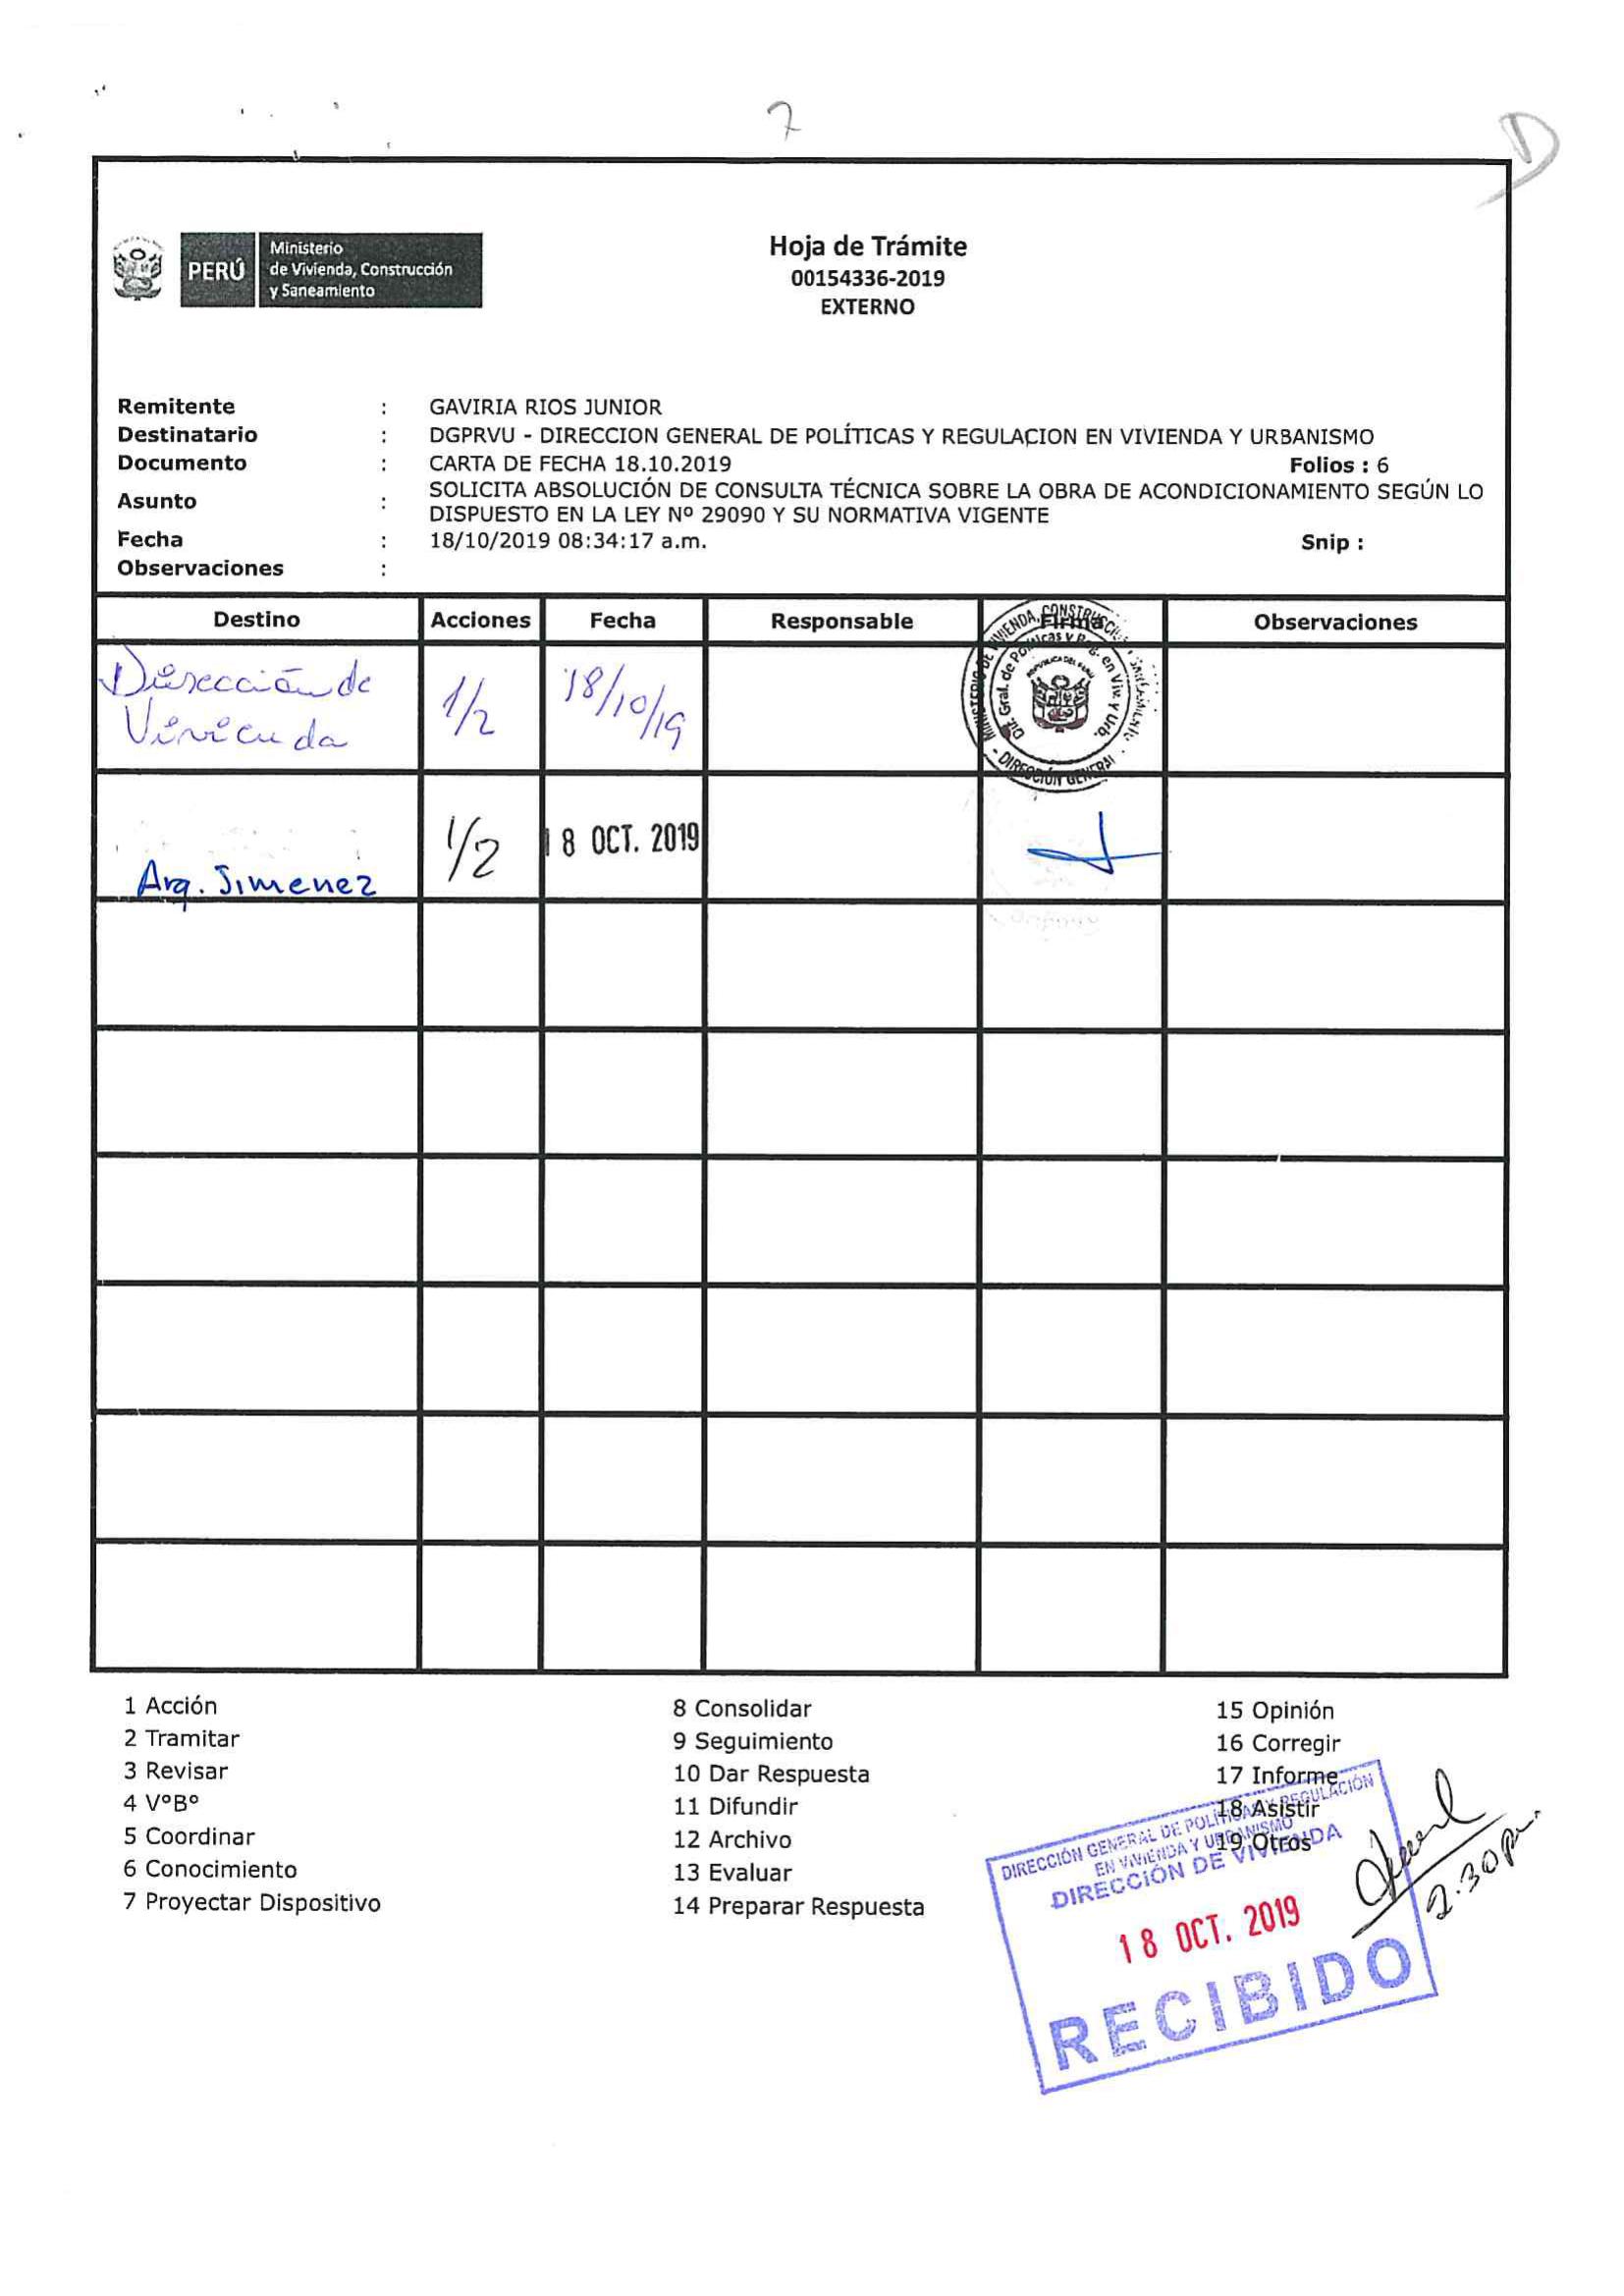 7
D
PERÚ
Ministerio
de Vivienda, Construcción
y Saneamiento
Hoja de Trámite
00154336-2019
EXTERNO
Remitente : GAVIRIA RIOS JUNIOR
Destinatario : DGPRVU - DIRECCION GENERAL DE POLÍTICAS Y REGULACION EN VIVIENDA Y URBANISMO
Documento : CARTA DE FECHA 18.10.2019 Folios : 6
Asunto : SOLICITA ABSOLUCIÓN DE CONSULTA TÉCNICA SOBRE LA OBRA DE ACONDICIONAMIENTO SEGÚN LO
DISPUESTO EN LA LEY Nº 29090 Y SU NORMATIVA VIGENTE
Fecha : 18/10/2019 08:34:17 a.m. Snip :
Observaciones :
Destino Acciones Fecha Responsable Firma Observaciones
Dirección de
Vivienda 1/2 18/10/19
DIRECCIÓN GENERAL
Arq. Jimenez 1/2 18 OCT. 2019
1 Acción
2 Tramitar
3 Revisar
4 VºBº
5 Coordinar
6 Conocimiento
7 Proyectar Dispositivo
8 Consolidar
9 Seguimiento
10 Dar Respuesta
11 Difundir
12 Archivo
13 Evaluar
14 Preparar Respuesta
15 Opinión
16 Corregir
17 Informe
18 Asistir
19 Otros
DIRECCIÓN GENERAL DE POLÍTICAS Y REGULACIÓN
EN VIVIENDA Y URBANISMO
DIRECCIÓN DE VIVIENDA
18 OCT. 2019
RECIBIDO
2:30 pm